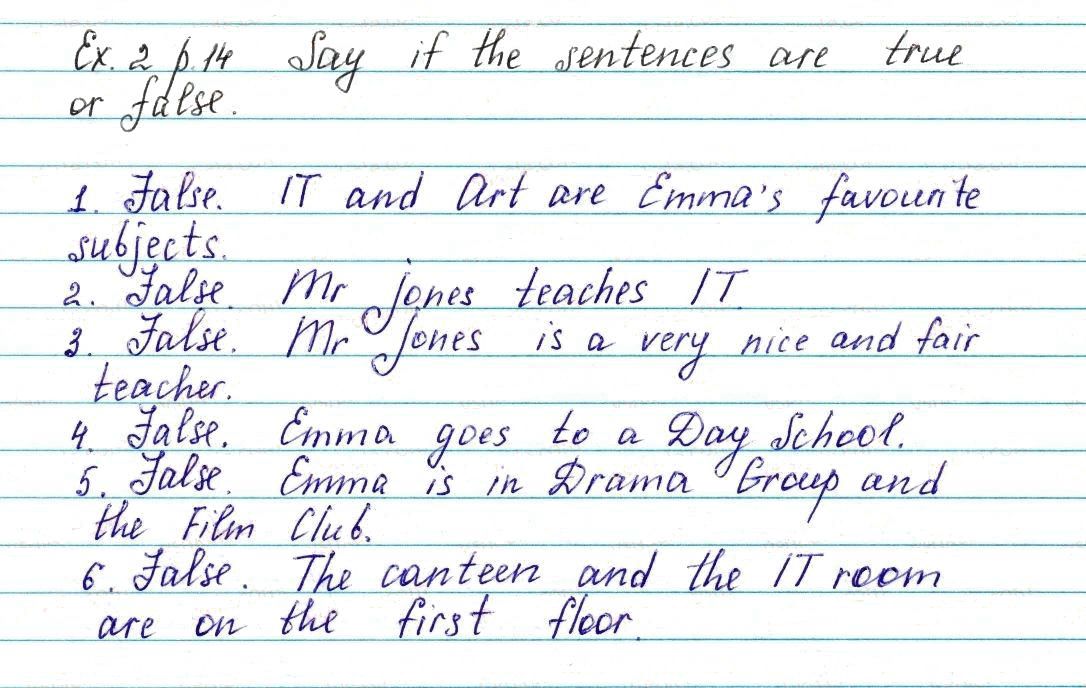 Ex. 2 p. 14 Say if the sentences are true
or false.
1. False. IT and Art are Emma's favourite
subjects.
2. False. Mr Jones teaches IT.
3. False. Mr Jones is a very nice and fair
teacher.
4. False. Emma goes to a Day School.
5. False. Emma is in Drama Group and
the Film Club.
6. False. The canteen and the IT room
are on the first floor.